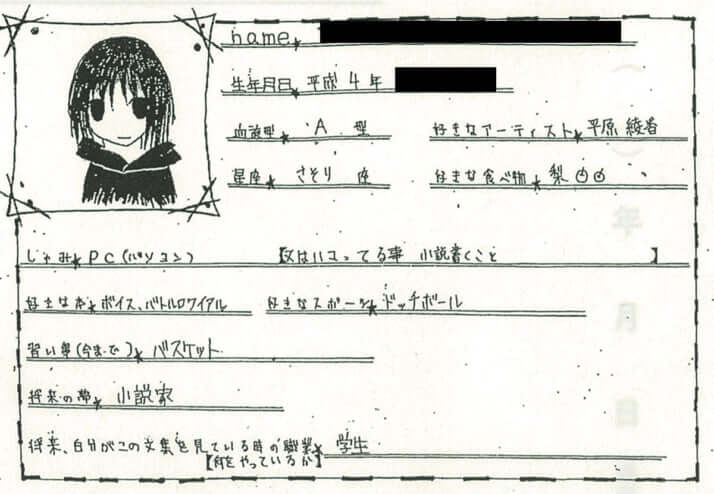 name★
生年月日★ 平成 4年
血液型★ A 型
好きなアーティスト★ 平原 綾香
星座★ さそり 座
好きな食べ物★ 梨
しゅみ★ PC(パソコン) 【又はハマってる事 小説書くこと】
好きな本★ ボイス、バトルロワイアル
好きなスポーツ★ ドッチボール
習い事(今まで)★ バスケット
将来の夢★ 小説家
将来、自分がこの文集を見ている時の職業★ 学生
【何をやっているか】
年
月
日